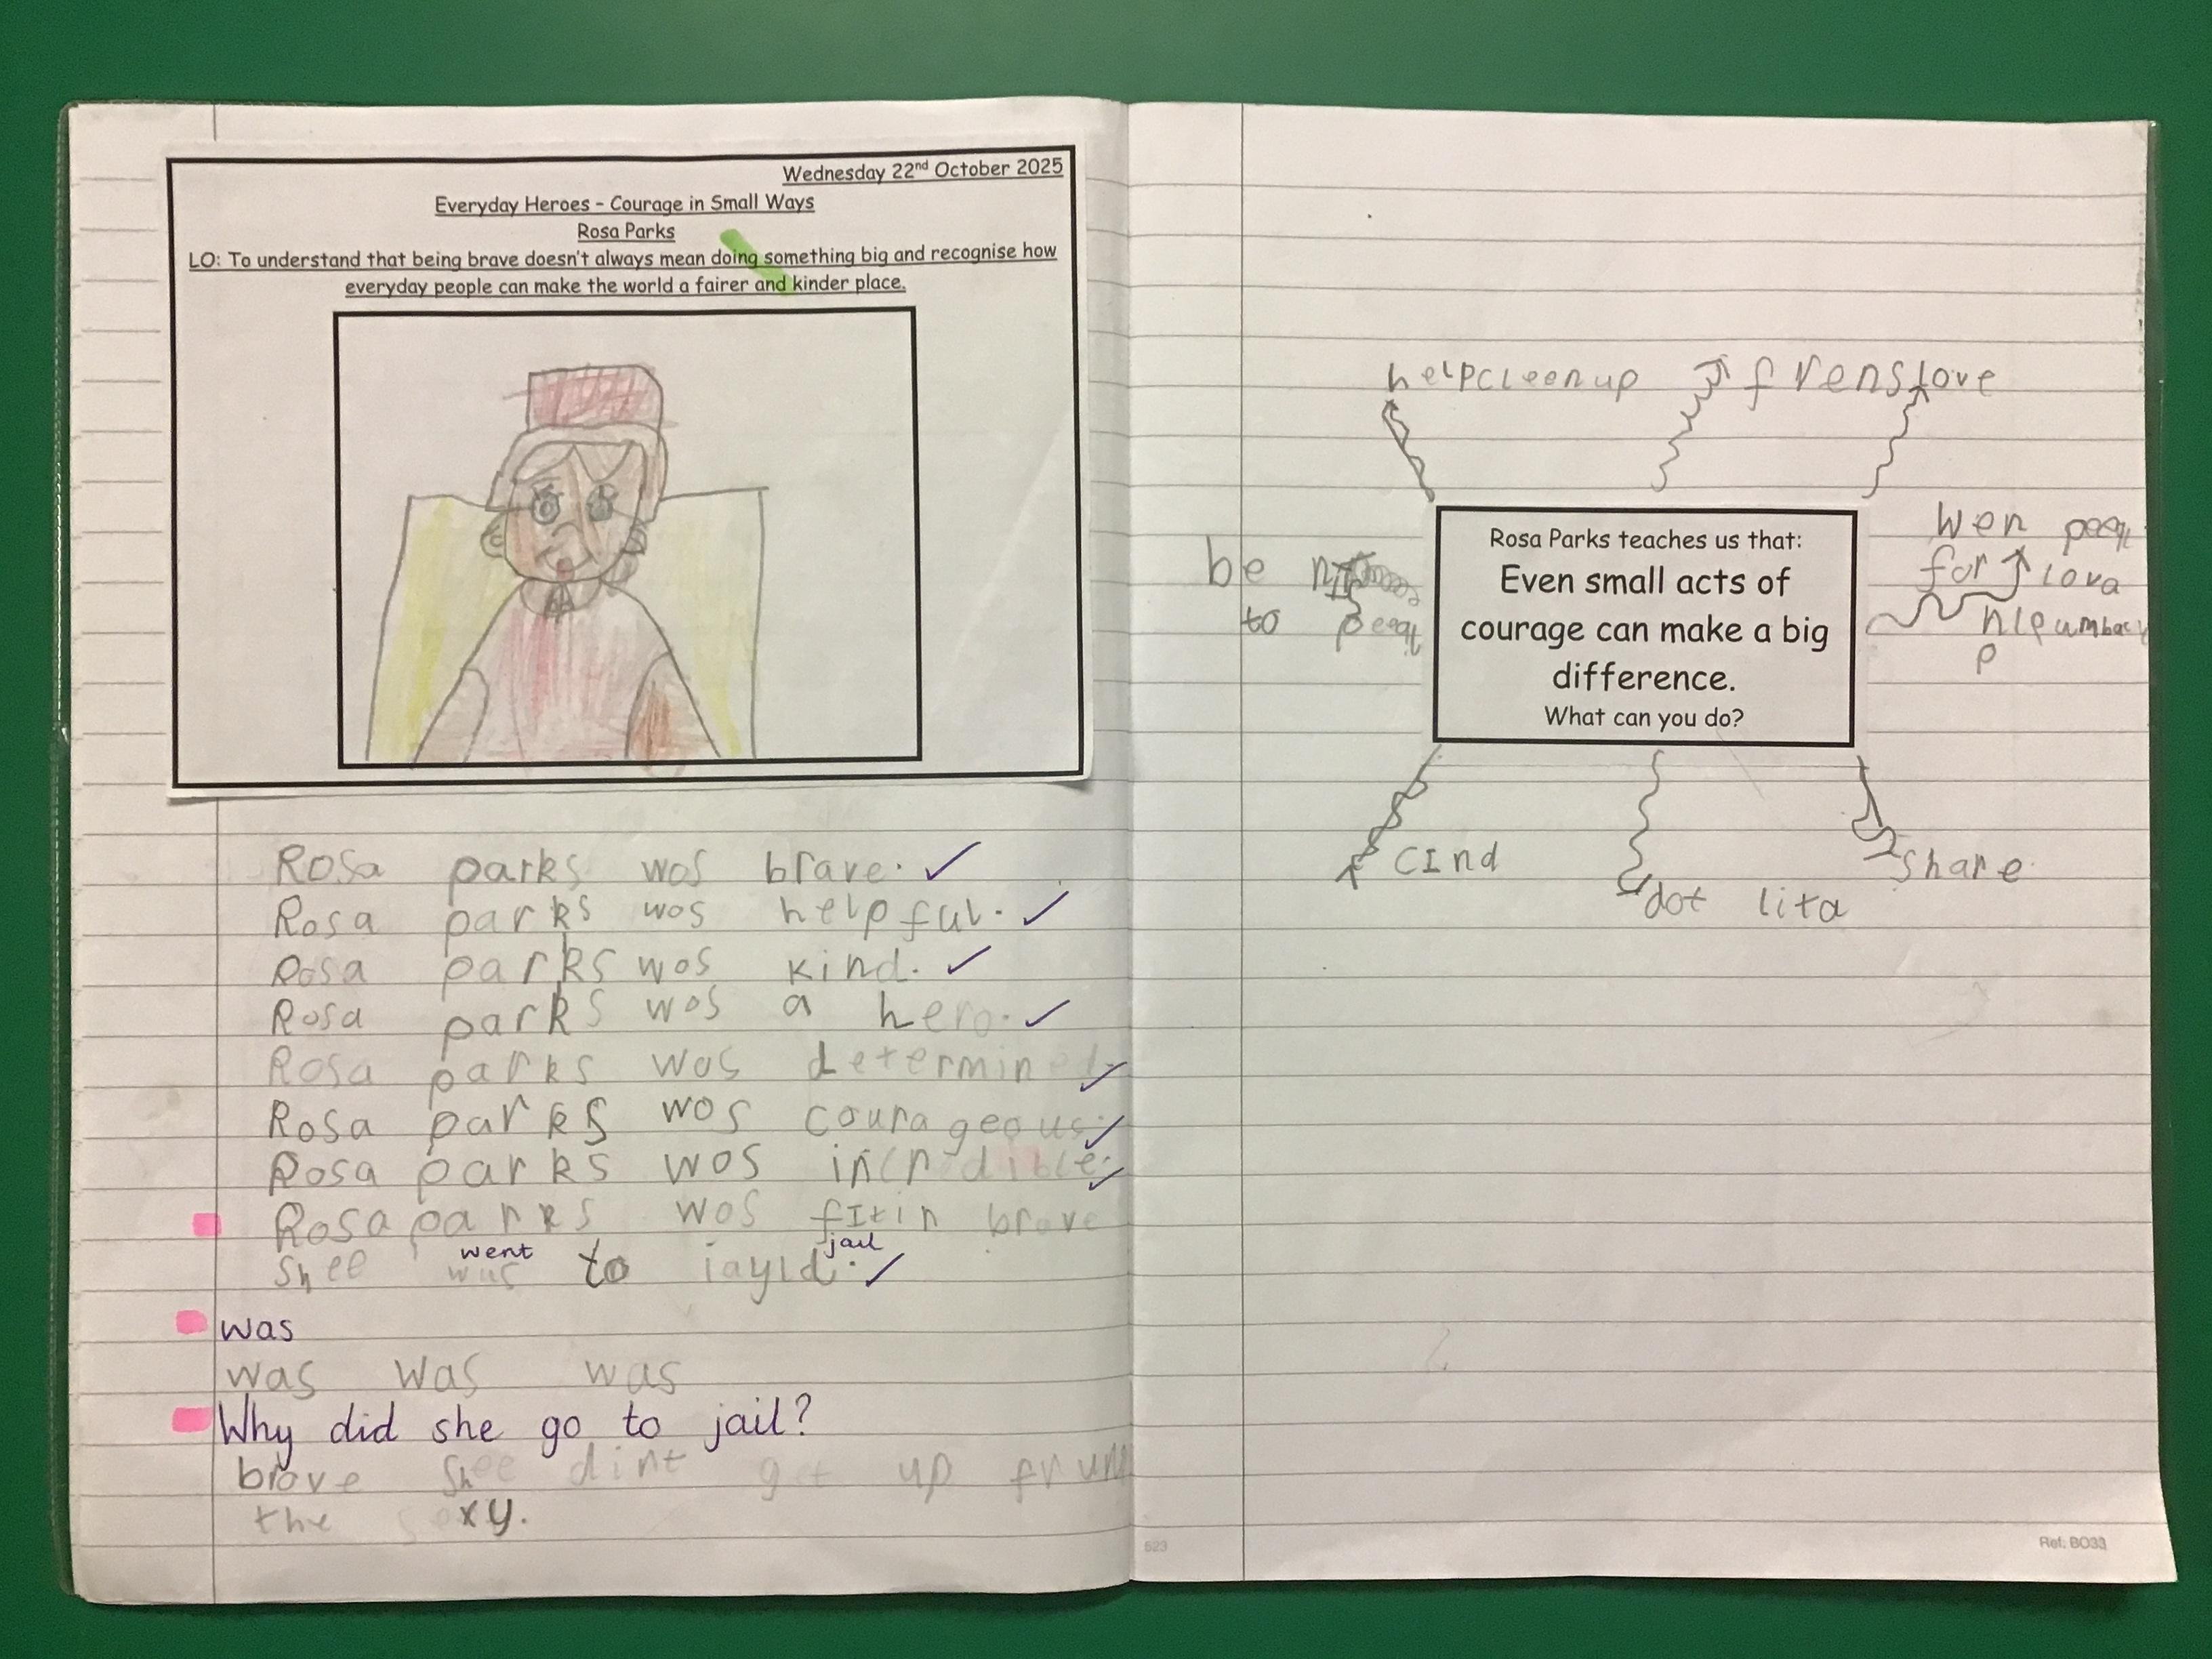 Wednesday 22nd October 2025
Everyday Heroes - Courage in Small Ways
Rosa Parks
LO: To understand that being brave doesn't always mean doing something big and recognise how
everyday people can make the world a fairer and kinder place.
Rosa parks wos brave.
Rosa parks wos helpful.
Rosa parks wos kind.
Rosa parks wos a hero.
Rosa parks wos determined.
Rosa parks wos courageous.
Rosa parks wos incredible.
Rosa parks wos fItin brave
went jail
Shee wus to iayld.
was
was was was
Why did she go to jail?
brave Shee dint get up frum
the
helpcleenup frens love
be
to
Rosa Parks teaches us that:
Even small acts of
courage can make a big
difference.
What can you do?
Wen
for lova
CInd
dot lita
Share
623
Ref: BO33